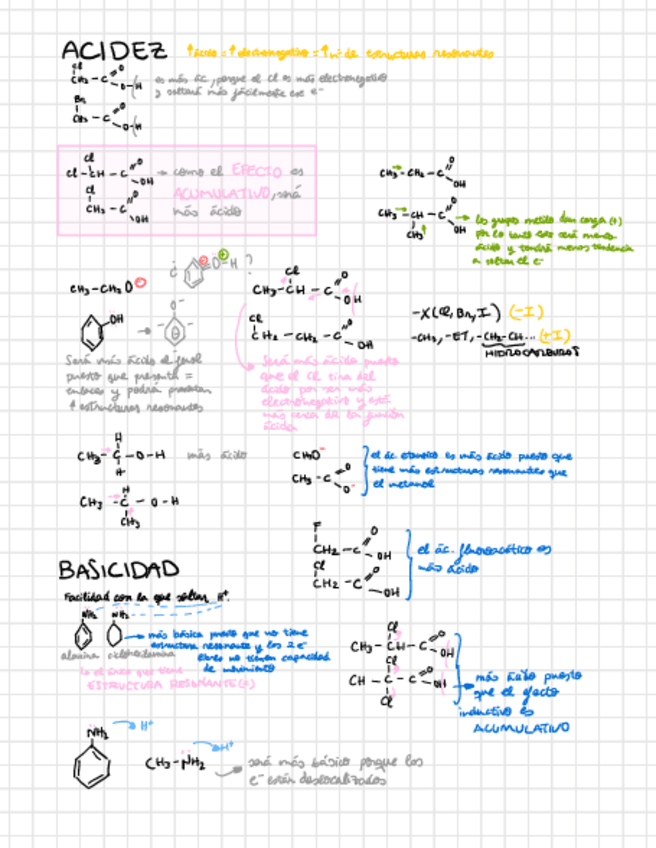 ACIDEZ ↑ácido = ↑electronegativo = ↑nº de estructuras resonantes
Cl
CH₂ - C O
O-H
es más ác, porque el Cl es más electronegativo
y soltará más fácilmente ese e⁻
Br
CH₂ - C O
O-H
Cl
Cl - CH - C O
OH
Cl
CH₂ - C O
OH
→ como el EFECTO es
ACUMULATIVO, será
más ácido
CH₃ - CH₂ - C O
OH
CH₃ - CH - C O
OH
CH₃
los grupos metilo dan carga (-)
por lo tanto este será menos
ácido y tendrá menos tendencia
a soltar el e⁻
¿ O-H ?
CH₃-CH₂O⁻
OH
O⁻
Será más ácido el fenol
puesto que presenta =
enlaces y podrá presentar
↑ estructuras resonantes
Cl
CH₃ - CH - C O
OH
Cl
CH₂ - CH₂ - C O
OH
Será más ácido puesto
que el Cl tira del
ácido por ser más
electronegativo y está
más cerca de la función
ácida
-X (Cl, Br, I) (-I)
-CH₃, -ET, -CH₂-CH... (+I)
HIDROCARBUROS
H
CH₃ - C - O - H más ácido
H
H
CH₃ - C - O - H
CH₃
CH₃O⁻
CH₃ - C O
O⁻
el ác. etanoico es más ácido puesto que
tiene más estructuras resonantes que
el metanol
F
CH₂ - C O
OH
Cl
CH₂ - C O
OH
el ác. fluoroacético es
más ácido
BASICIDAD
Facilidad con la que soltar H⁺.
NH₂ NH₂
→ más básica puesto que no tiene
estructura resonante y los 2 e⁻
libres no tienen capacidad
de movimiento
ciclohexilamina
lo el único que tiene
ESTRUCTURA RESONANTE (-)
Cl
CH₃ - CH - C O
OH
Cl
CH - C - C O
OH
Cl
más ácido puesto
que el efecto
inductivo es
ACUMULATIVO
NH₂ H⁺
CH₃ - NH₂ H⁺
será más básico porque los
e⁻ están deslocalizados